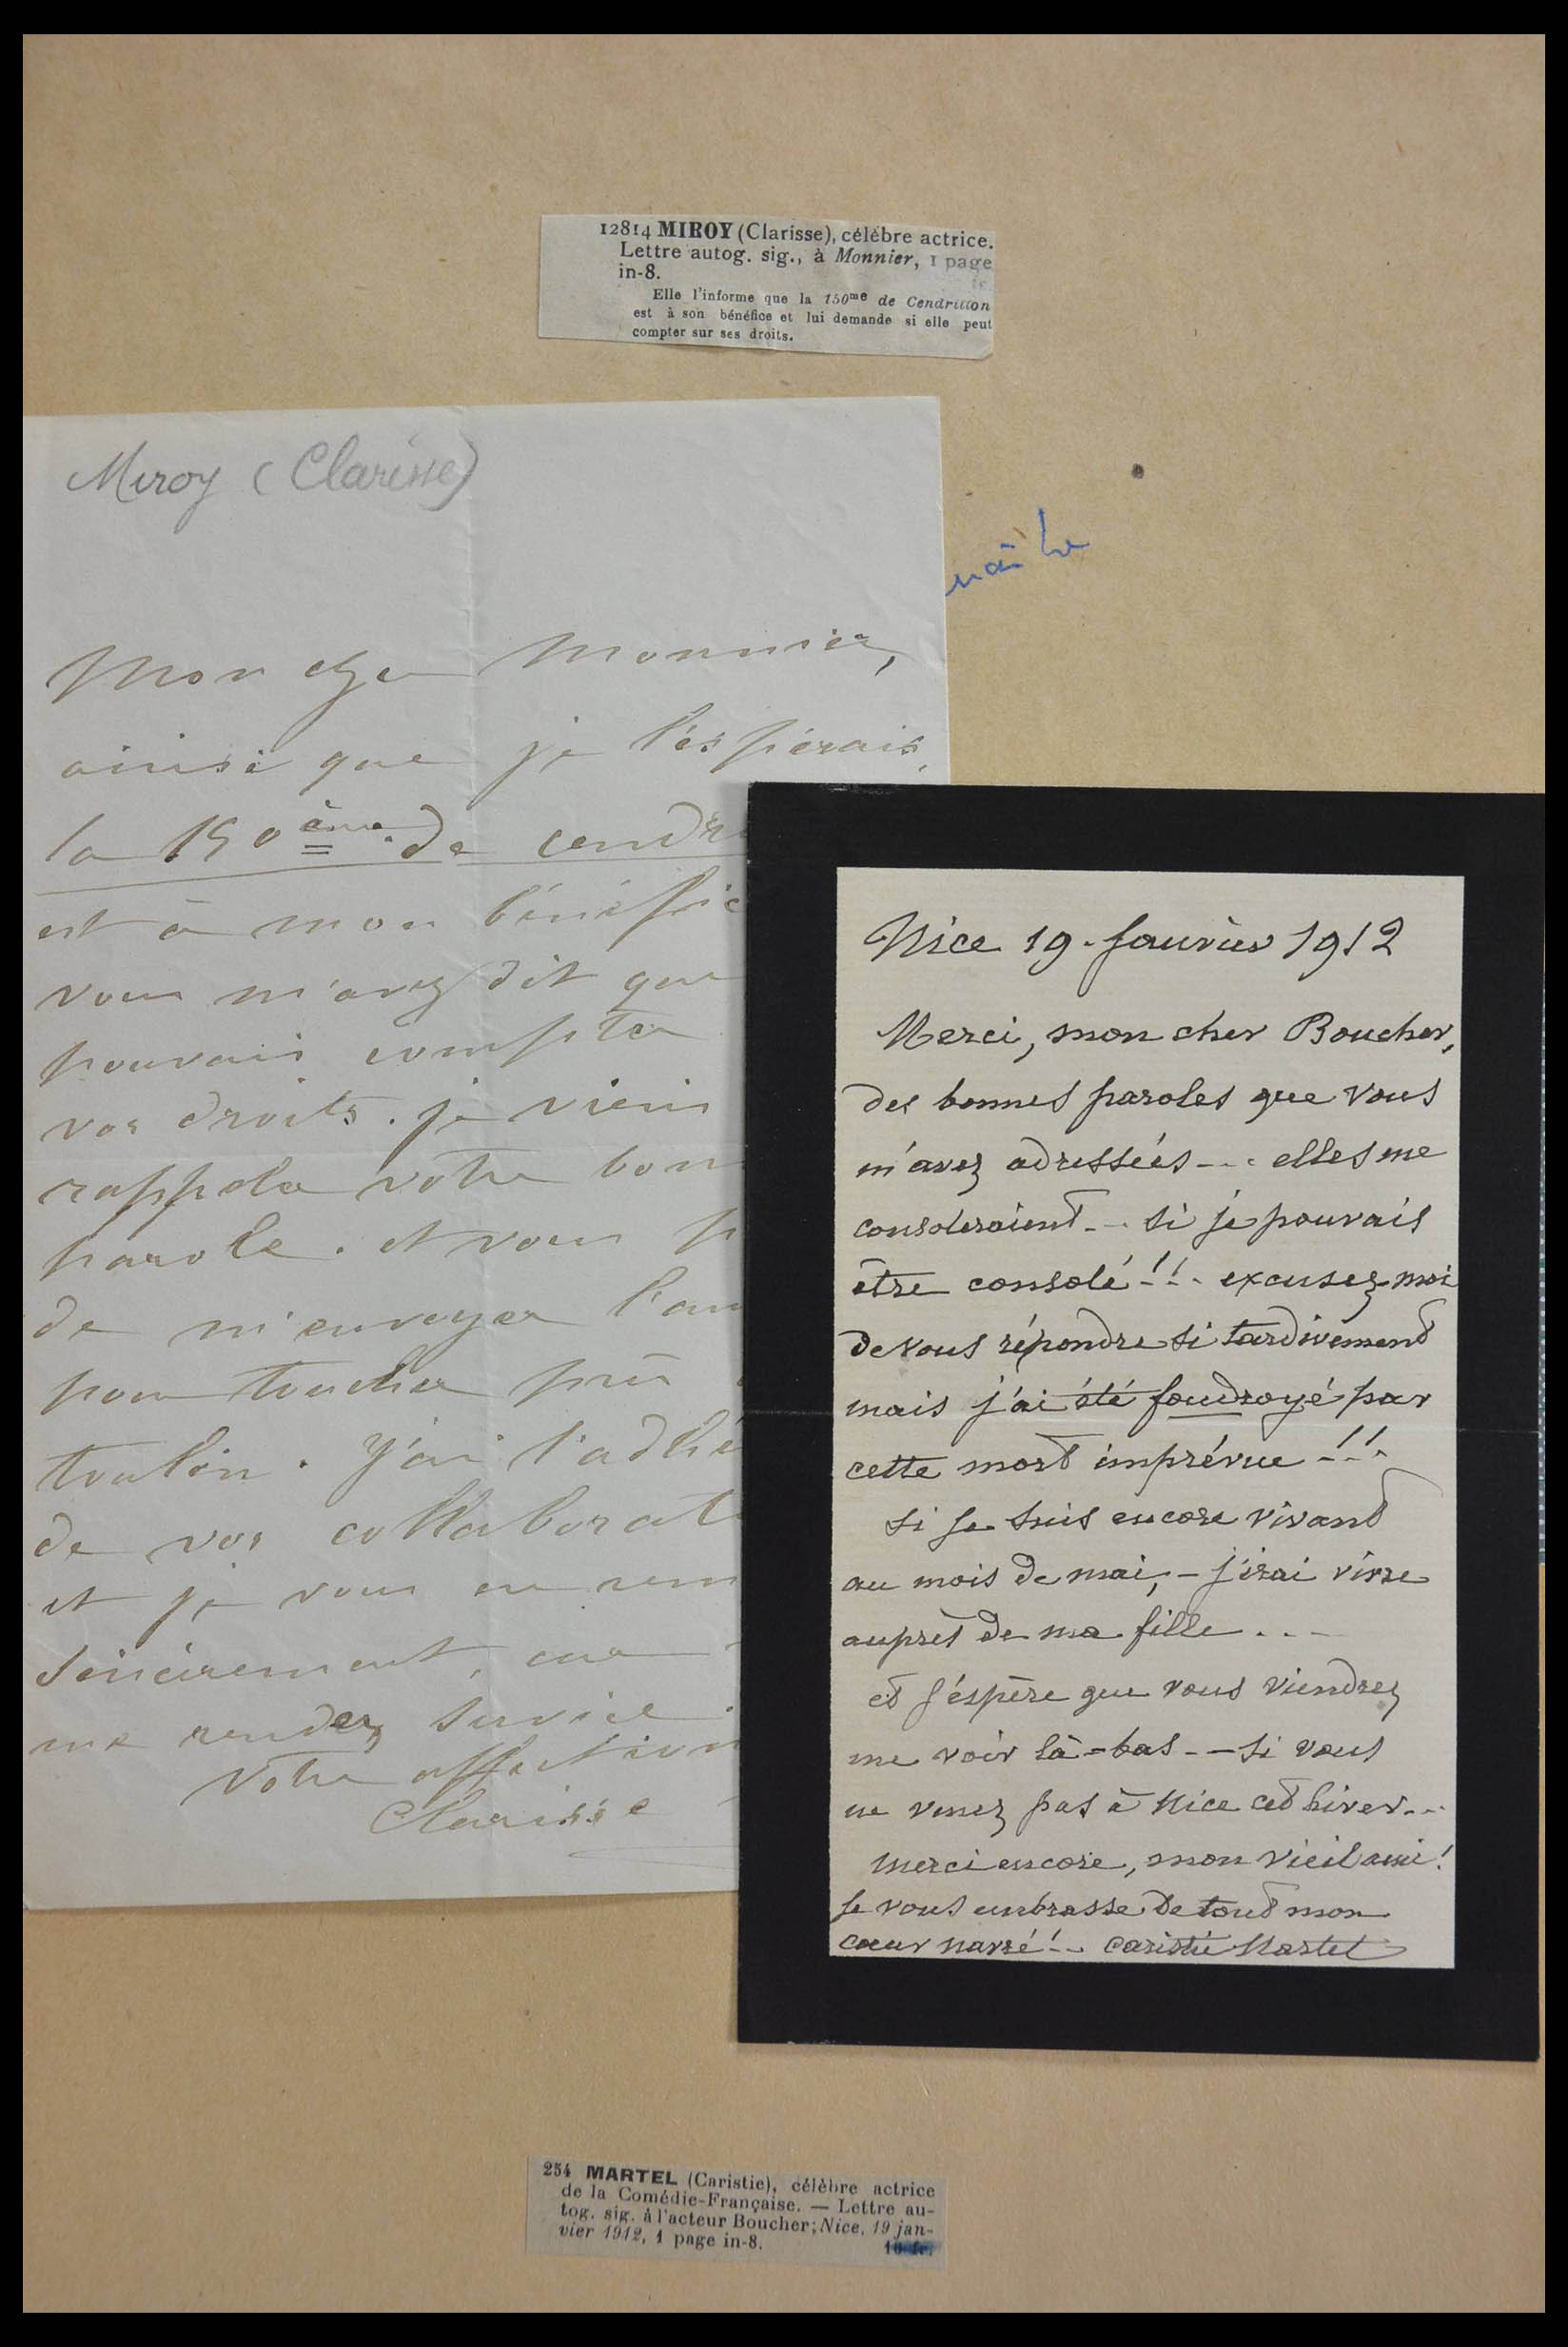 12814 MIROY (Clarisse), célèbre actrice.
Lettre autog. sig., à Monnier, 1 page
in-8.
Elle l'informe que la 150me de Cendrillon
est à son bénéfice et lui demande si elle peut
compter sur ses droits.
Miroy (Clarisse)
Mon cher Monnier,
ainsi que je l'espérais,
la 150ème de cendr
est à mon bénéfic
vous m'avez dit que
pouvais compter
vos droits. je viens
rappeler votre bon
parole. et vous p
de m'envoyer l'au
pour toucher
toulon. J'ai l'adhé
de vos collaborat
et je vous en rem
sincèrement, car
me rendez service.
Votre affection
Clarisse
Nice 19. Janvier 1912
Merci, mon cher Boucher,
des bonnes paroles que vous
m'avez adressées... elles me
consoleraient... si je pouvais
être consolé!!. excusez-moi
de vous répondre si tardivement
mais j'ai été foudroyé par
cette mort imprévue!!.
Si je suis encore vivant
au mois de mai, - j'irai vivre
auprès de ma fille...
et j'espère que vous viendrez
me voir là-bas - - si vous
ne venez pas à Nice cet hiver...
Merci encore, mon vieil ami!
Je vous embrasse de tout mon
cœur navré!.. Caristie Martel
254 MARTEL (Caristie), célèbre actrice
de la Comédie-Française. — Lettre au-
tog. sig. à l'acteur Boucher; Nice, 19 jan-
vier 1912, 1 page in-8. 10 fr.